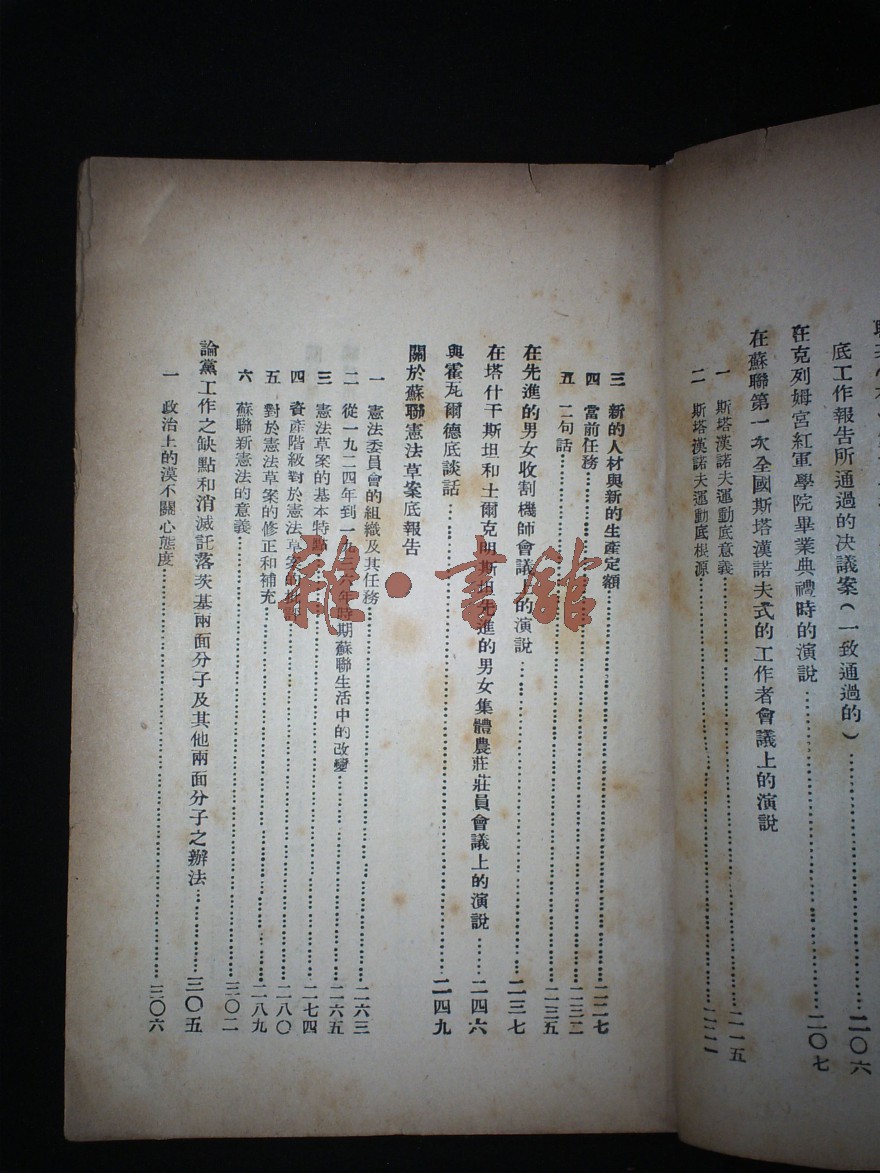 底工作報告所通過的决議案(一致通過的)……二〇六
在克列姆宮紅軍學院畢業典禮時的演說……二〇七
在蘇聯第一次全國斯塔漢諾夫式的工作者會議上的演說
一 斯塔漢諾夫運動底意義……二一五
二 斯塔漢諾夫運動底根源……二二一
三 新的人材與新的生產定額……二二七
四 當前任務……二三二
五 二句話……二三五
在先進的男女收割機師會議上的演說……二三七
在塔什干斯坦和土爾克明斯坦先進的男女集體農莊莊員會議上的演說……二四六
與霍瓦爾德底談話……二四九
關於蘇聯憲法草案底報告
一 憲法委員會的組織及其任務……二六三
二 從一九二四年到一九三六年時期蘇聯生活中的改變……二六五
三 憲法草案的基本特點……二七四
四 資產階級對於憲法草案的批評……二八〇
五 對於憲法草案的修正和補充……二八九
六 蘇聯新憲法的意義……三〇二
論黨工作之缺點和消滅託落茨基兩面分子及其他兩面分子之辦法……三〇五
一 政治上的漠不關心態度……三〇六
雜·書館